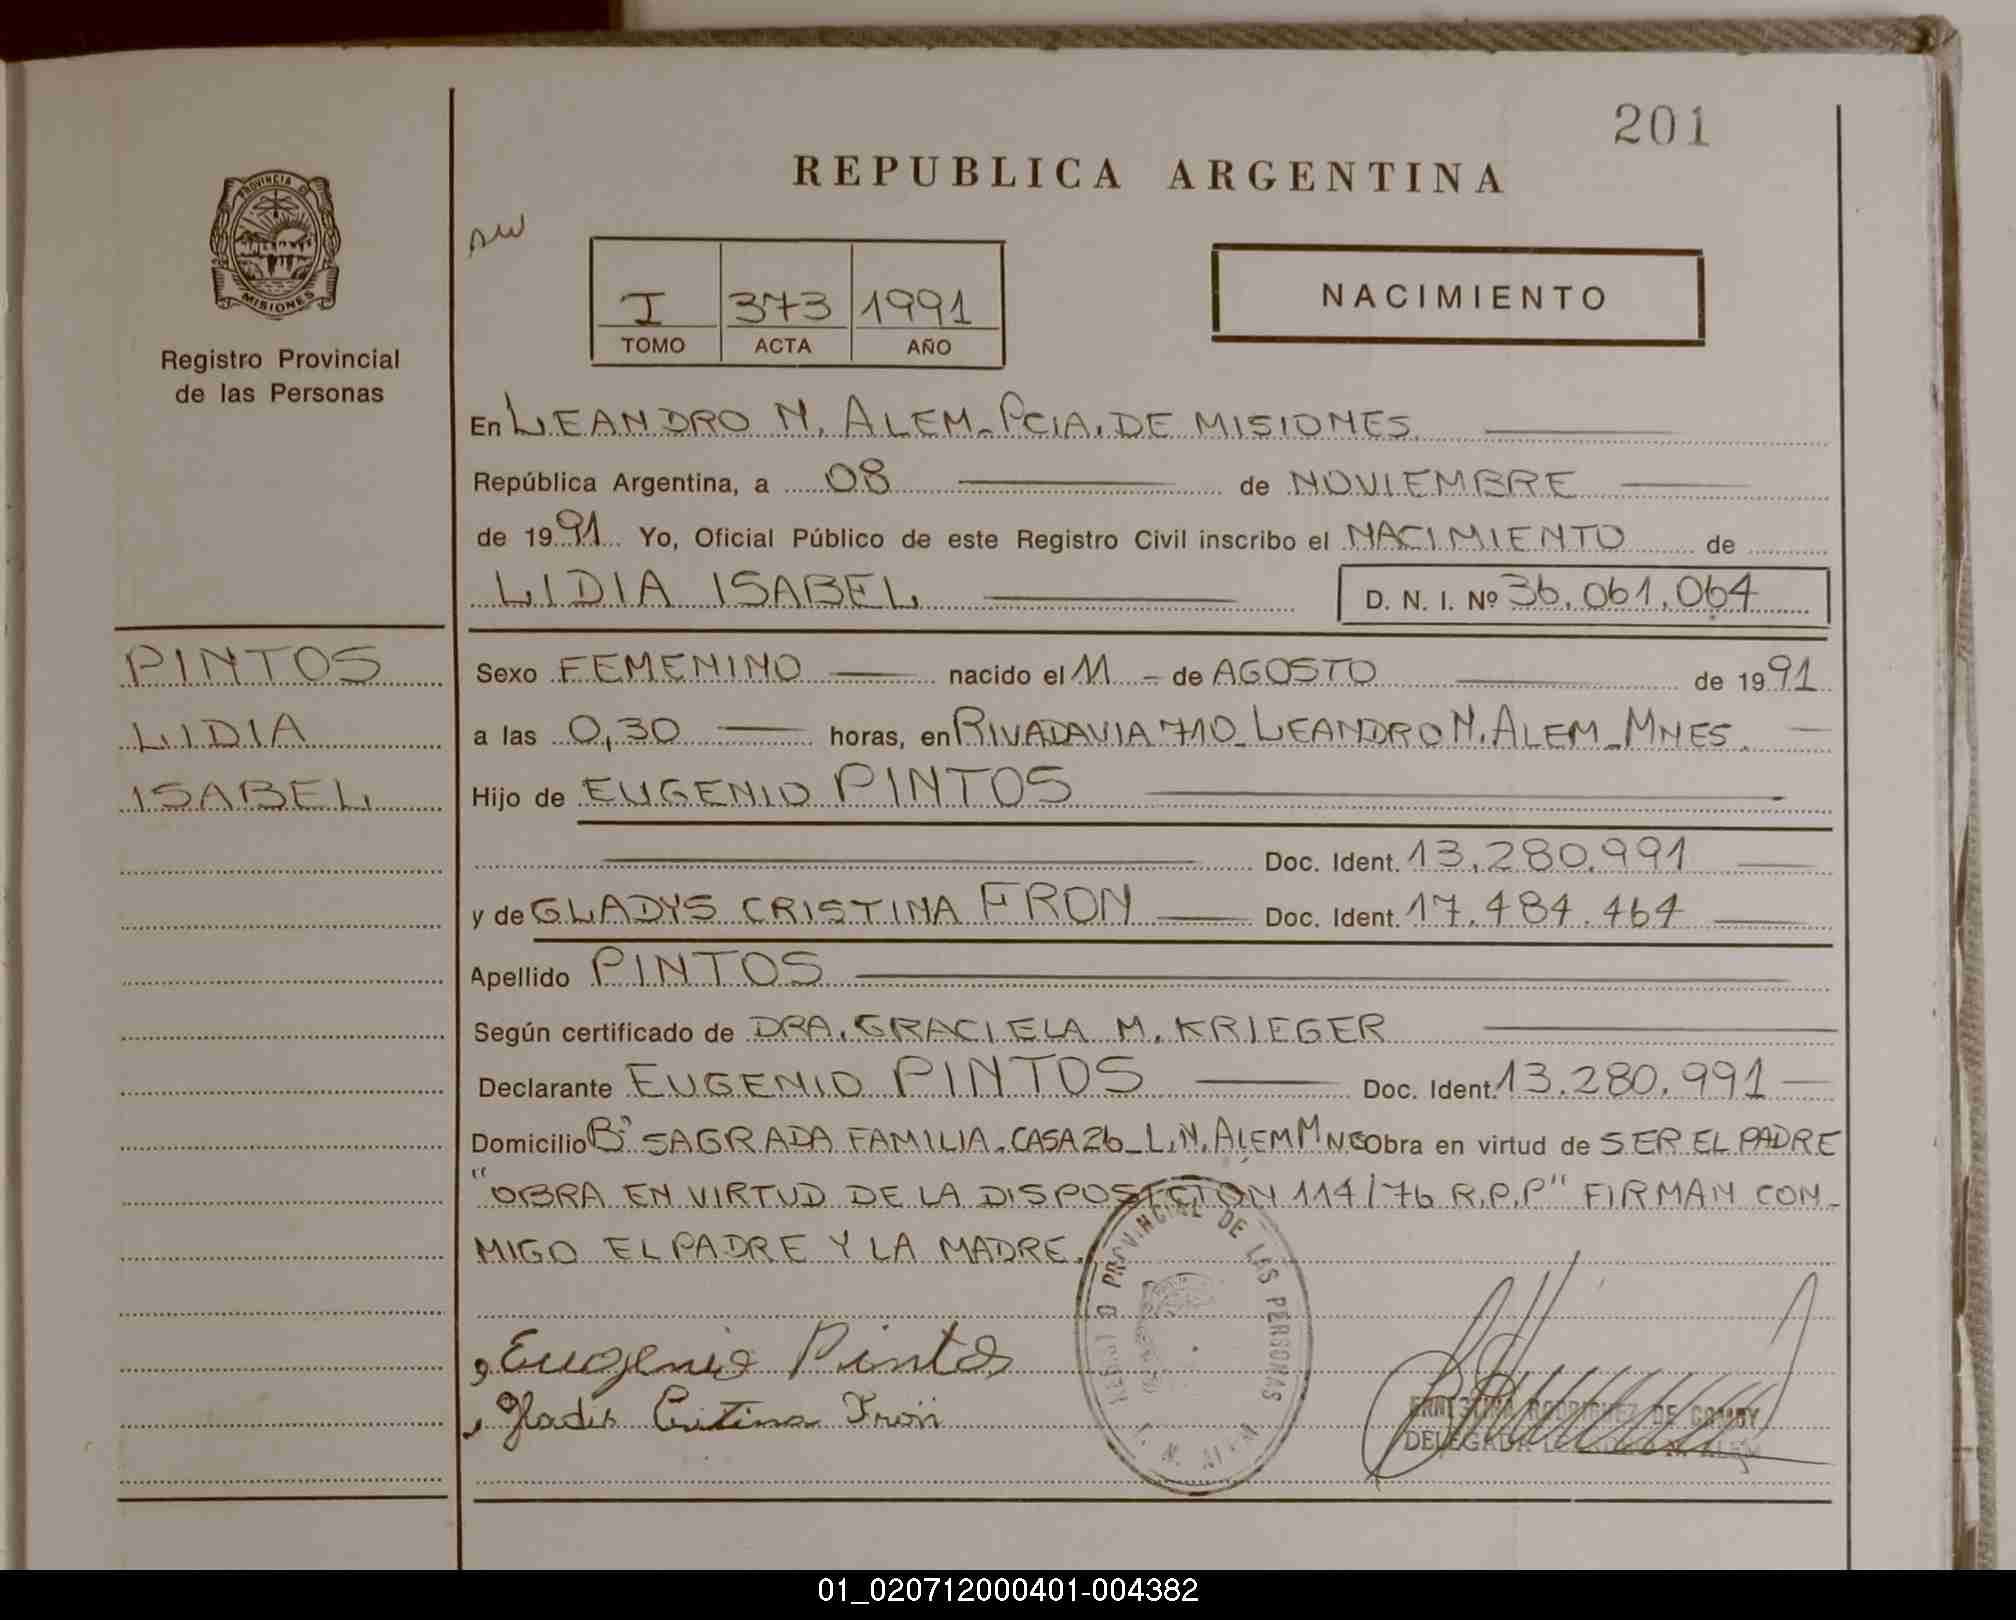 201
REPUBLICA ARGENTINA
PROVINCIA DE
MISIONES
Registro Provincial
de las Personas
I 373 1991
TOMO ACTA AÑO
NACIMIENTO
En LEANDRO N. ALEM_PCIA. DE MISIONES
República Argentina, a 08 de NOVIEMBRE
de 1991 Yo, Oficial Público de este Registro Civil inscribo el NACIMIENTO de
LIDIA ISABEL D. N. I. Nº 36.061.064
PINTOS
LIDIA
ISABEL
Sexo FEMENINO nacido el 11 - de AGOSTO de 1991
a las 0,30 horas, en RIVADAVIA 710_LEANDRO N. ALEM_MNES.
Hijo de EUGENIO PINTOS
Doc. Ident. 13.280.991
y de GLADYS CRISTINA FRON Doc. Ident. 17.484.464
Apellido PINTOS
Según certificado de DRA. GRACIELA M. KRIEGER
Declarante EUGENIO PINTOS Doc. Ident. 13.280.991
Domicilio Bº SAGRADA FAMILIA. CASA 26_L.N. ALEM MNES Obra en virtud de SER EL PADRE
"OBRA EN VIRTUD DE LA DISPOSICION 114/76 R.P.P" FIRMAN CON-
MIGO EL PADRE Y LA MADRE.
REGISTRO PROVINCIAL DE LAS PERSONAS
L. N. ALEM
Eugenio Pintos
Gladis Cristina Fron
RODRIGUEZ DE
DELEGADA
01_020712000401-004382